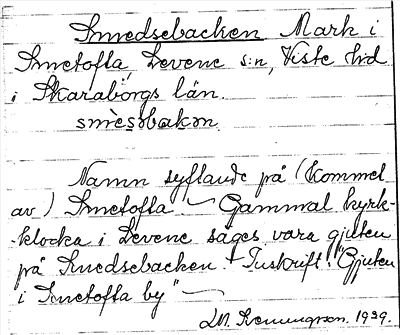 Smedsebacken Mark i
Smetofta, Levene s:n, Viste hrd
i Skaraborgs län.
smèsbakan.
Namn syftande på (kommet
av) Smetofta. — Gammal kyrk-
klocka i Levene säges vara gjuten
på Smedsebacken. Inskrift: "Gjuten
i Smetofta by" —
1939.